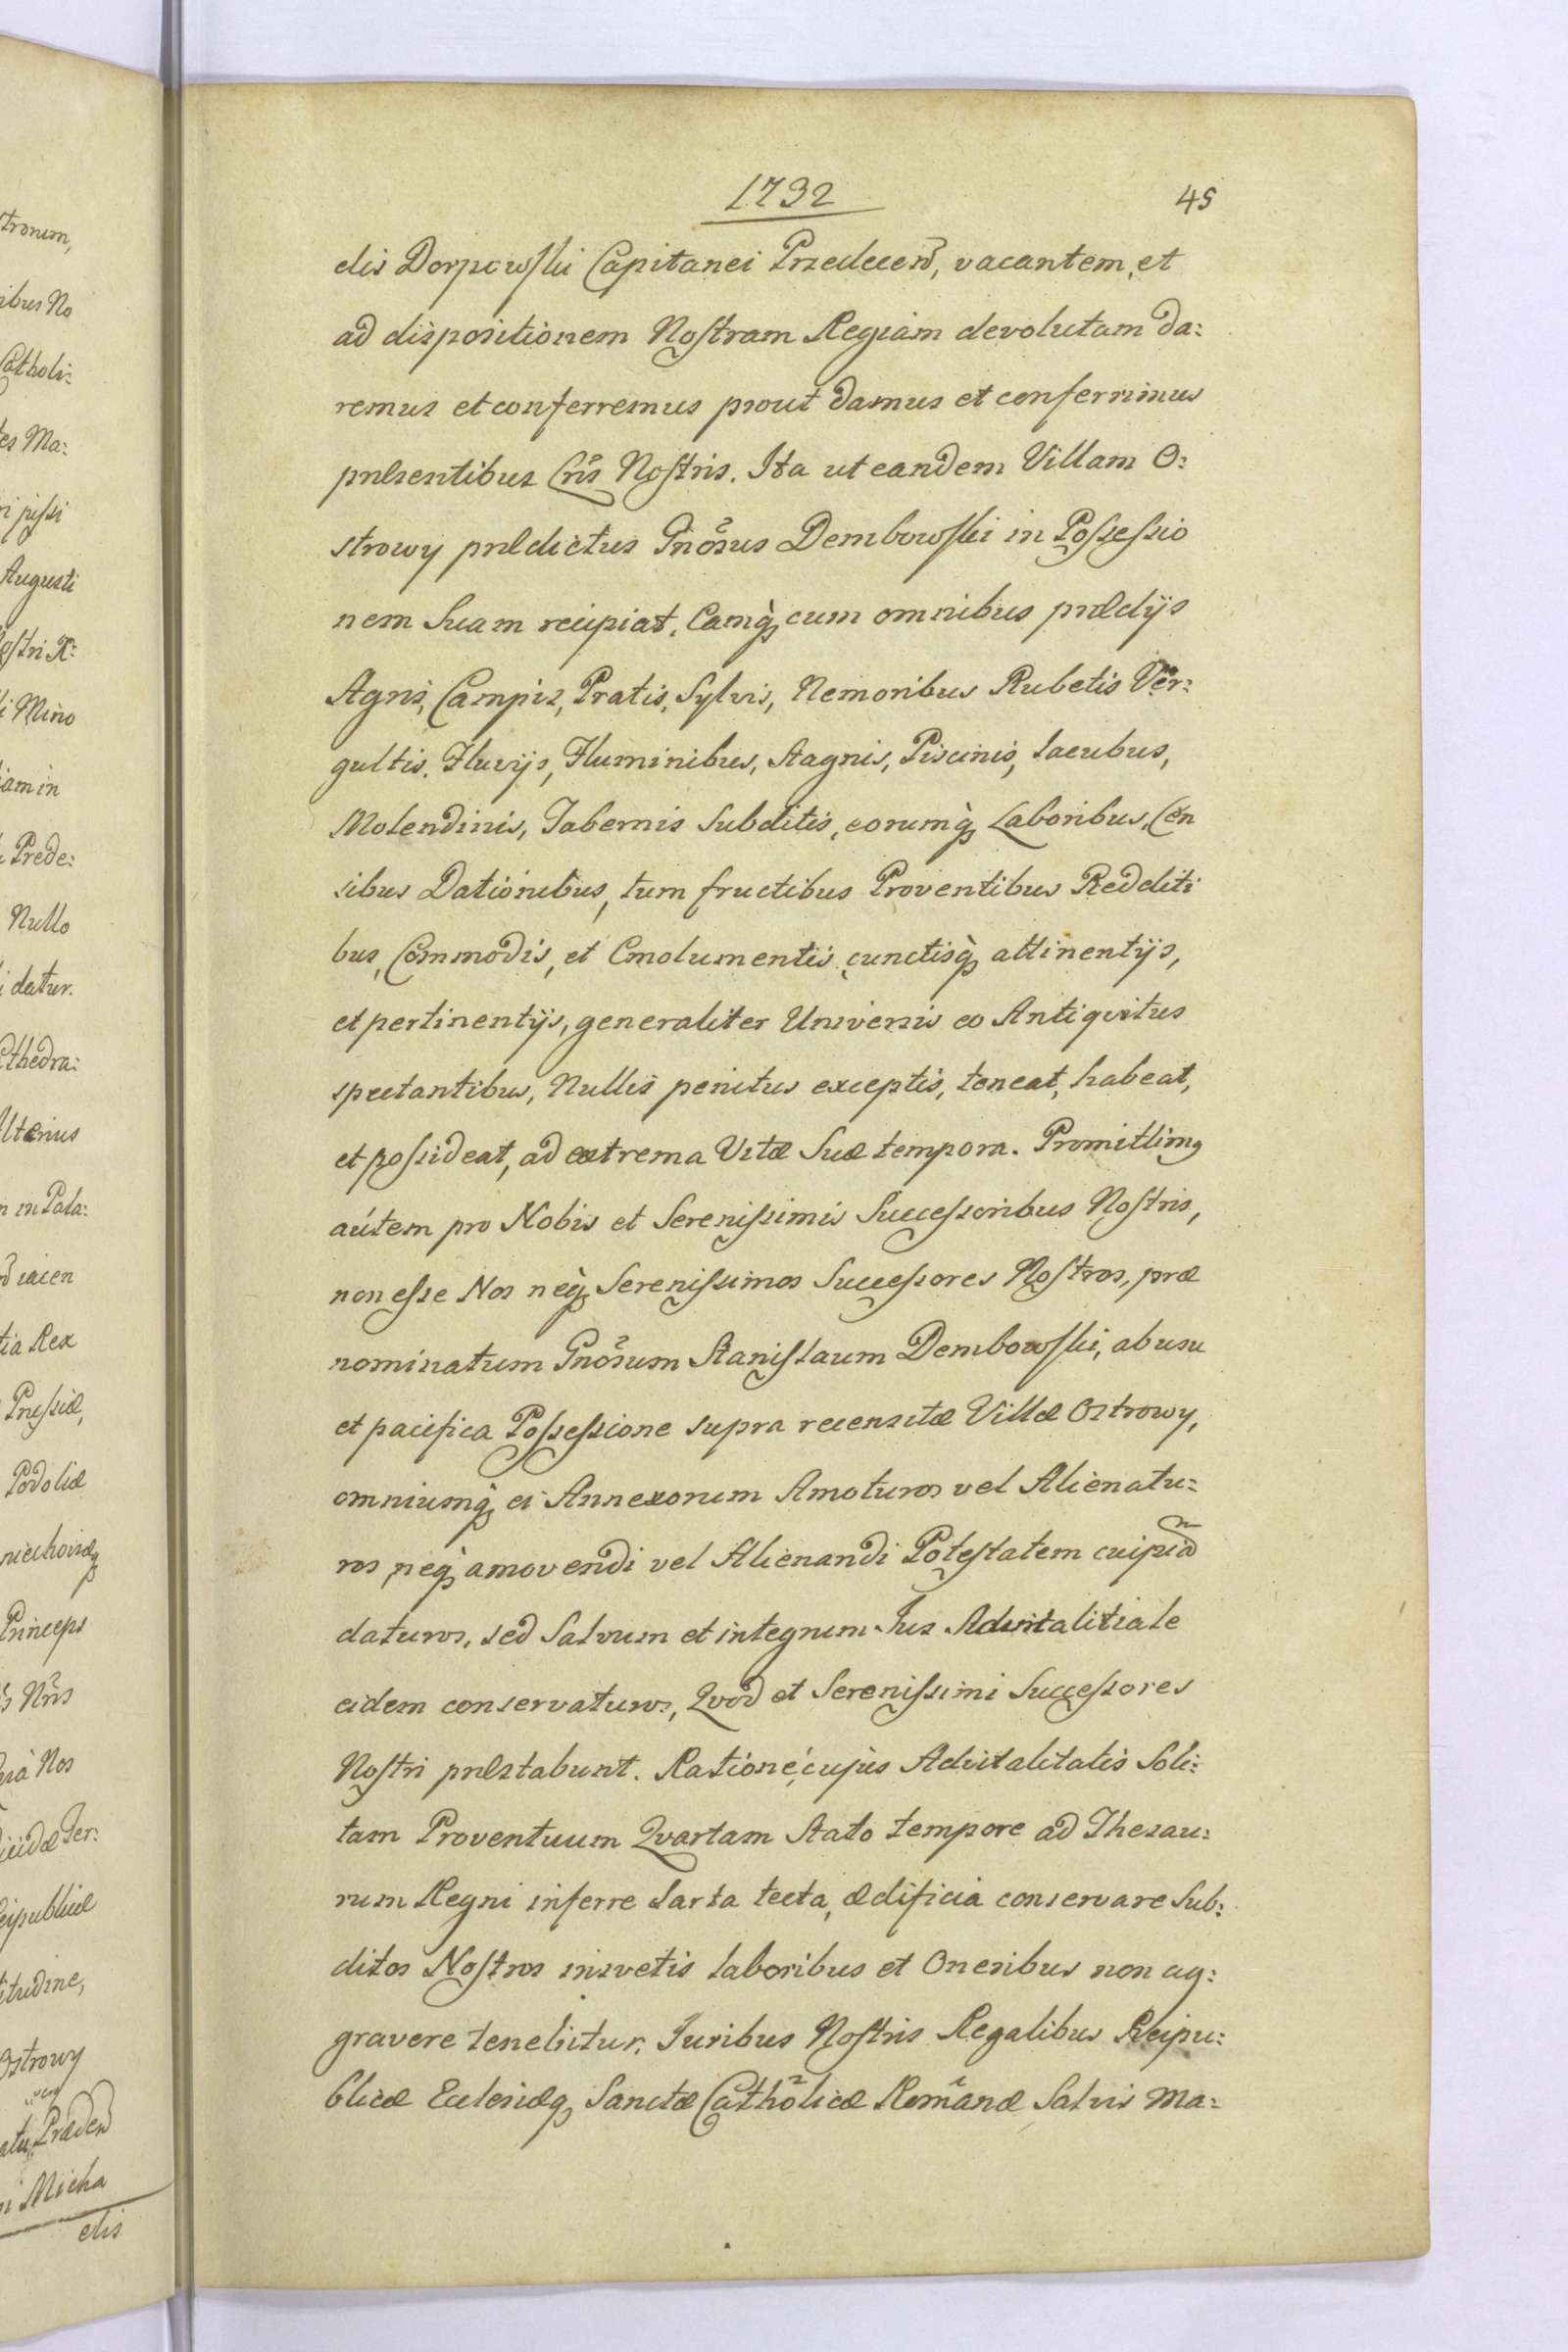 1732
45
elis Dorpowski Capitanei Przedecen̄, vacantem, et
ad dispositionem Nostram Regiam devolutam da:
remus et conferremus prout damus et conferrimus
præsentibus Lrīs Nostris. Ita ut eandem Villam O:
strowy prædictus Gnōsus Dembowski in Possessio
nem Suam recipiat, Eamq̀ cum omnibus prædijs
Agris, Campis, Pratis, Sylvis, Nemoribus Rubetis Vir:
gultis, Fluvijs, Fluminibus, Stagnis, Piscinis, lacubus,
Molendinis, Tabernis Subditis, eorumq̀ Laboribus, Cen
sibus Dationibus, tum fructibus Proventibus Redditi
bus, Commodis, et Emolumentis cunctisq̀ attinentijs,
et pertinentijs, generaliter Universis eo Antiqvitus
spectantibus, Nullis penitus exceptis, teneat, habeat,
et possideat, ad extrema Vitæ Suæ tempora. Promittimꝰ
autem pro Nobis et Serenissimis Successoribus Nostris,
non esse Nos neq̀ Serenissimos Successores Nostros, præ
nominatum Gnōsum Stanislaum Dembowski, ab usu
et pacifica Possessione supra recensitæ Villæ Ostrowy,
omniumq̀ ei Annexorum Amoturos vel Alienatu:
ros, neq̀ amovendi vel Alienandi Potestatem cuipiā
daturos, sed Salvum et integrum Jus Advitalitiale
eidem conservaturos, Qvod et Serenissimi Successores
Nostri præstabunt. Ratione, cujus Advitalitatis Soli:
tam Proventuum Qvartam Stato tempore ad Thesau:
rum Regni inferre Sarta tecta, ædificia conservare Sub:
ditos Nostros insvetis laboribus et Oneribus non ag:
gravere tenebitur. Juribus Nostris Regalibus Reipu:
blicæ Ecclesiæq̀ Sanctæ Cathōlicæ Romānæ Salvis Ma: